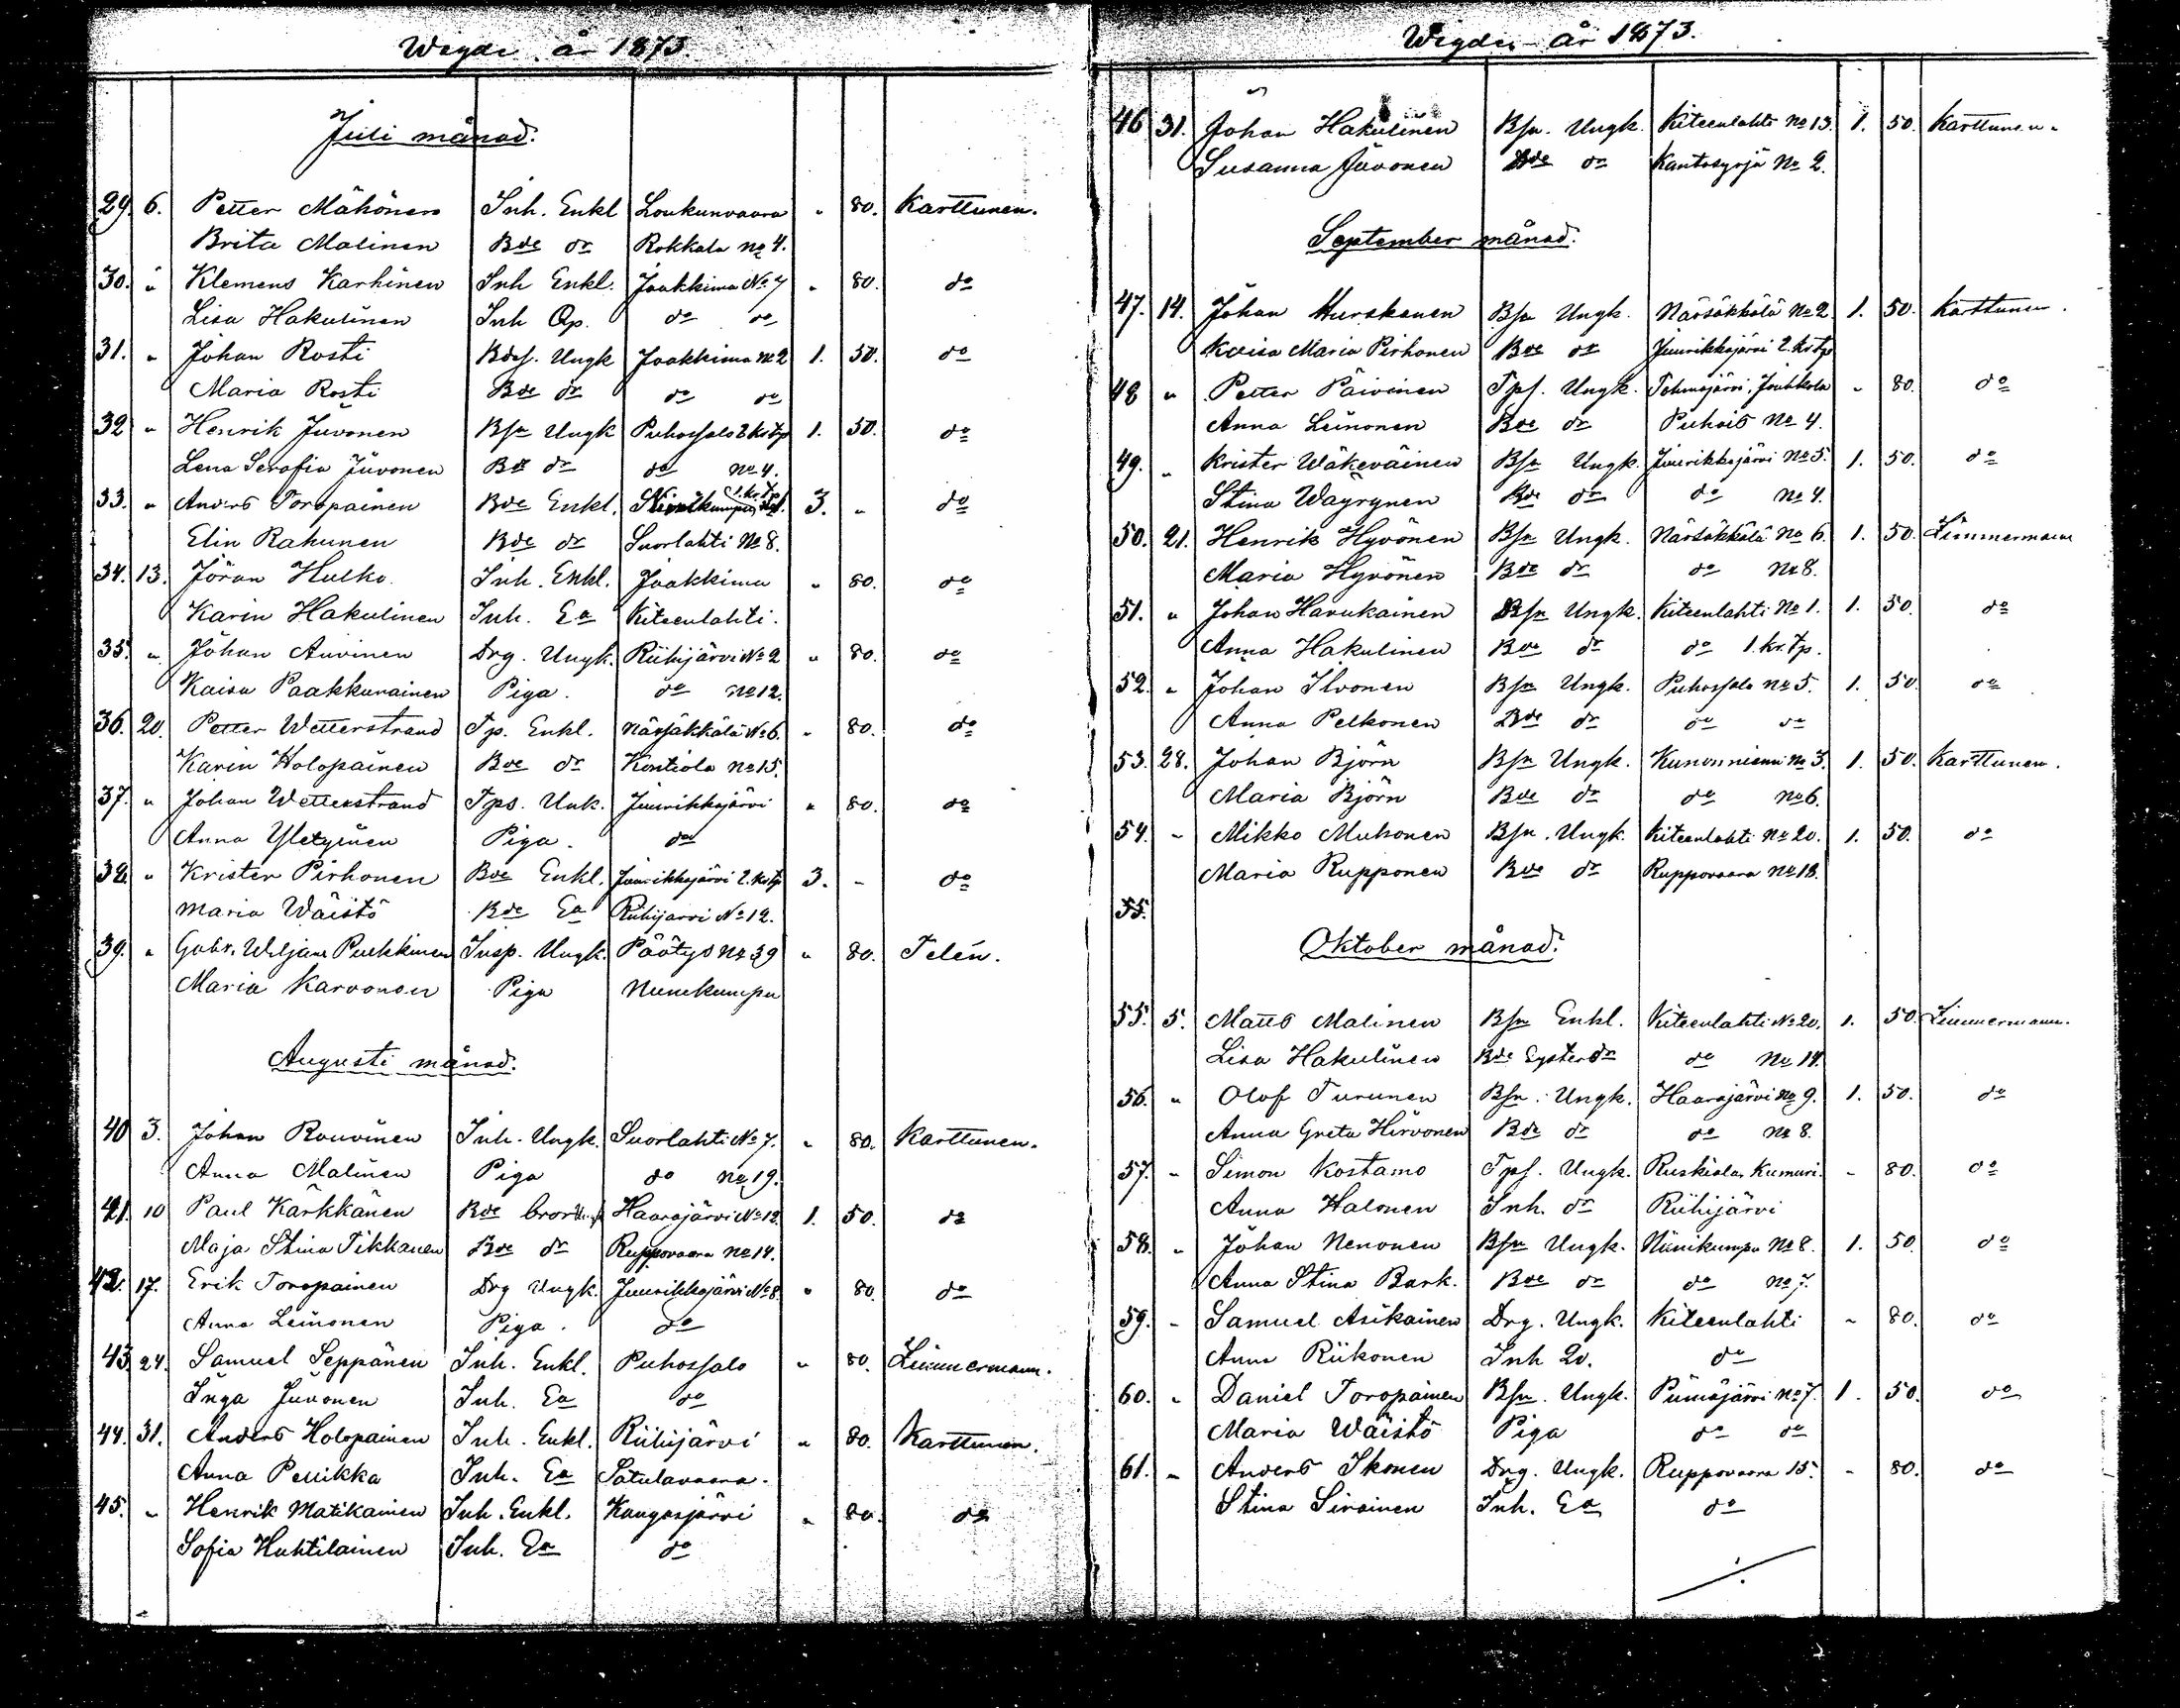 Wigde år 1873.
Juli månad.
29. 6. Petter Mähönen Inh. Enkl Loukunvaara " 80. Karttunen.
Brita Malinen Bde dr Rokkala No 4.
30. " Klemens Karhinen Inh Enkl. Jaakkima No 7 " 80. do
Lisa Hakulinen Inh Qp. do do
31. " Johan Rosti Bdes. Ungk Jaakkima No 2 1. 50. do
Maria Rosti Bde dr do do
32 " Henrik Juvonen Bsn Ungk Puhossalo 2 kr tp 1. 50. do
Lena Serafia Juvonen Bde dr do No 4.
33. " Anders Toropainen Bde Enkl. 1. kr. tp 3. " do
Elin Rahunen Bde dr Suorlahti No 8.
34. 13. Jöran Hulko Inh. Enkl. Jaakkima " 80. do
Karin Hakulinen Inh. Ea Kiteenlahti.
35. " Johan Auvinen Drg. Ungk. Riihijärvi No 2 " 80. do
Kaisa Paakkunainen Piga. do No 12.
36. 20. Petter Wetterstrand Tp. Enkl. Närsäkkälä No 6. " 80. do
Karin Holopainen Bde dr Kontiola No 15.
37. " Johan Wetterstrand Tps. Unk. Juurikkajärvi " 80. do
Anna Yletyinen Piga. do
38. " Krister Pirhonen Bde Enkl. Juurikkajärvi 2. kr tp 3. - do
Maria Wäistö Bde Ea Riihijärvi No 12.
39. " Gabr. Wiljam Puhkinen Insp. Ungk. Päätys No 39 " 80. Telén.
Maria Karvonen Piga Niinikumpu
Augusti månad.
40 3. Johan Rouvinen Inh. Ungk. Suorlahti No 7. " 80. Karttunen.
Anna Malinen Piga do No 19.
41. 10 Paul Kärkkänen Bde bror Ungk Haarajärvi No 12 1. 50. do
Maja Stina Tikkanen Bde dr Ruppovaara No 14.
42. 17. Erik Toropainen Drg Ungk. Juurikkajärvi No 8. " 80. do
Anna Leinonen Piga. do
43. 24. Samuel Seppänen Inh. Enkl. Puhossalo " 80. Zimmermann.
Inga Juvonen Inh. Ea do
44. 31. Anders Holopainen Inh. Enkl. Riihijärvi " 80. Karttunen.
Anna Pellikka Inh. Ea Satulavaara.
45. " Henrik Matikainen Inh. Enkl. Kangasjärvi " 80. do
Sofia Huhtilainen Inh. Ea do
Wigde år 1873.
46 31. Johan Hakulinen Bsn. Ungk. Kiteenlahti No 13. 1. 50. Karttunen.
Susanna Juvonen Bde dr Kantosyrjä No 2.
September månad.
47. 14. Johan Hurskanen Bsn Ungk. Närsäkkälä No 2 1. 50. Karttunen.
Kaisa Maria Pirhonen Bde dr Juurikkajärvi 2. kr tp
48 " Petter Päivinen Tps. Ungk. Tohmajärvi, Jouhkola " 80. do
Anna Leinonen Bde dr Puhois No 4.
49. " Krister Wäkeväinen Bsn Ungk. Juurikkajärvi No 5. 1. 50. do
Stina Wäyrynen Bde dr do No 4.
50. 21. Henrik Hyvönen Bsn Ungk. Närsäkkälä No 6. 1. 50. Zimmermann
Maria Hyvönen Bde dr do No 8.
51. " Johan Havukainen Bsn Ungk. Kiteenlahti No 1. 1. 50. do
Anna Hakulinen Bde dr do 1. kr. tp.
52. " Johan Ilvonen Bsn Ungk. Puhossalo No 5. 1. 50 do
Anna Pelkonen Bde dr do do
53. 28. Johan Björn Bsn Ungk. Kunonniemi No 3. 1. 50. Karttunen.
Maria Björn Bde dr do No 6.
54. - Mikko Muhonen Bsn. Ungk. Kiteenlahti No 20. 1. 50. do
Maria Rupponen Bde dr Ruppovaara No 18.
55.
Oktober månad.
55. 5. Matts Malinen Bsn Enkl. Kiteenlahti No 20. 1. 50. Zimmermann.
Lisa Hakulinen Bde Syster dr do No 14.
56. " Olof Turunen Bsn. Ungk. Haarajärvi No 9. 1. 50. do
Anna Greta Hirvonen Bde dr do No 8.
57. - Simon Kostamo Tps. Ungk. Ruskiala, Kumuri. - 80. do
Anna Halonen Inh. dr Riihijärvi
58. " Johan Nenonen Bsn Ungk. Niinikumpu No 8. 1. 50. do
Anna Stina Bark. Bde dr do No 7.
59. - Samuel Asikainen Drg. Ungk. Kiteenlahti - 80. do
Anna Riikonen Inh do
60. " Daniel Toropainen Bsn. Ungk. Piimäjärvi No 7. 1. 50. do
Maria Wäistö Piga do do
61. " Anders Ikonen Drg. Ungk. Ruppovaara 15. - 80. do
Stina Siroinen Inh. Ea do